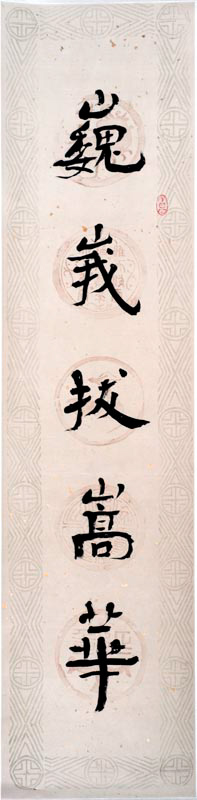 巍峩拔嵩華